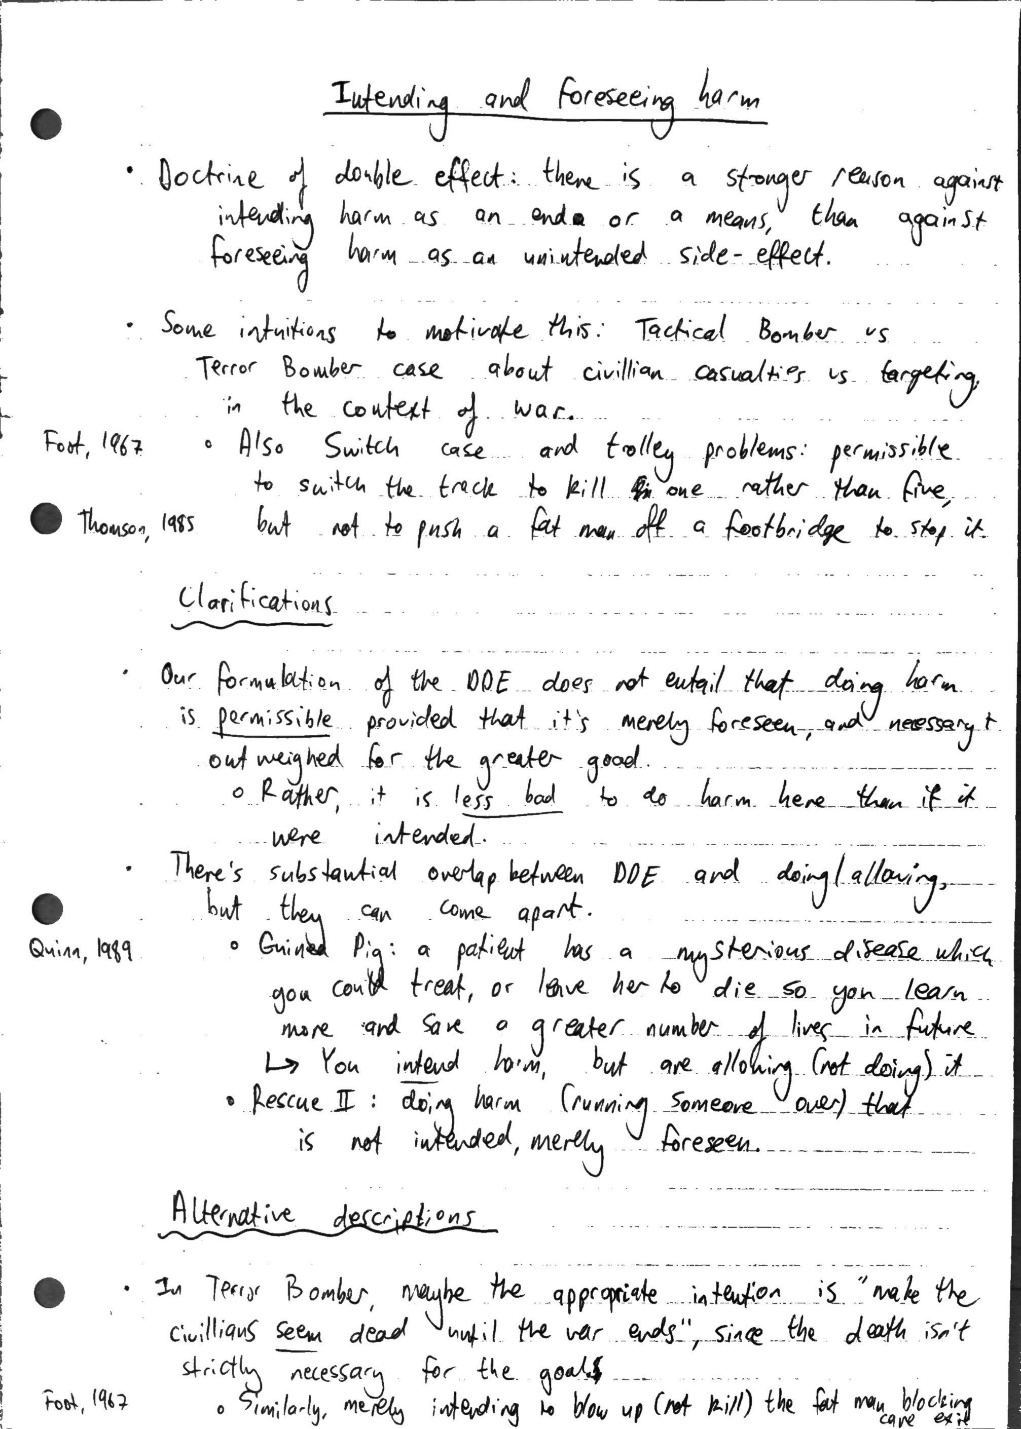 Intending and foreseeing harm
• Doctrine of double effect: there is a stronger reason against
intending harm as an end or a means, than against
foreseeing harm as an unintended side-effect.
• Some intuitions to motivate this: Tactical Bomber vs
Terror Bomber case about civillian casualties vs targeting,
in the context of war.
Foot, 1967 ∘ Also Switch case and trolley problems: permissible
to switch the track to kill one rather than five,
Thomson, 1985 but not to push a fat man off a footbridge to stop it.
Clarifications
• Our formulation of the DDE does not entail that doing harm
is permissible provided that it's merely foreseen, and necessary +
outweighed for the greater good.
∘ Rather, it is less bad to do harm here than if it
were intended.
• There's substantial overlap between DDE and doing/allowing,
but they can come apart.
Quinn, 1989 ∘ Guinea Pig: a patient has a mysterious disease which
you could treat, or leave her to die so you learn
more and save a greater number of lives in future
↳ You intend harm, but are allowing (not doing) it
∘ Rescue II: doing harm (running someone over) that
is not intended, merely foreseen.
Alternative descriptions
• In Terror Bomber, maybe the appropriate intention is "make the
civillians seem dead until the war ends", since the death isn't
strictly necessary for the goal
Foot, 1967 ∘ Similarly, merely intending to blow up (not kill) the fat man blocking
cave exit